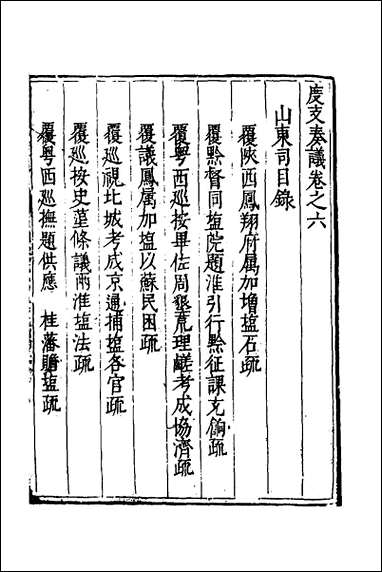 度支奏議卷之六
山東司目錄
覆陝西鳳翔府属加增塩石疏
覆黔督同塩院題淮引行黔征課充餉疏
覆粤西巡按畢佐周墾荒理鹺考成協濟疏
覆議鳳属加塩以蘇民困疏
覆巡視北城考成京通捕塩各官疏
覆巡按史䇹條議兩淮塩法疏
覆粤西巡撫題供應 桂藩贍塩疏